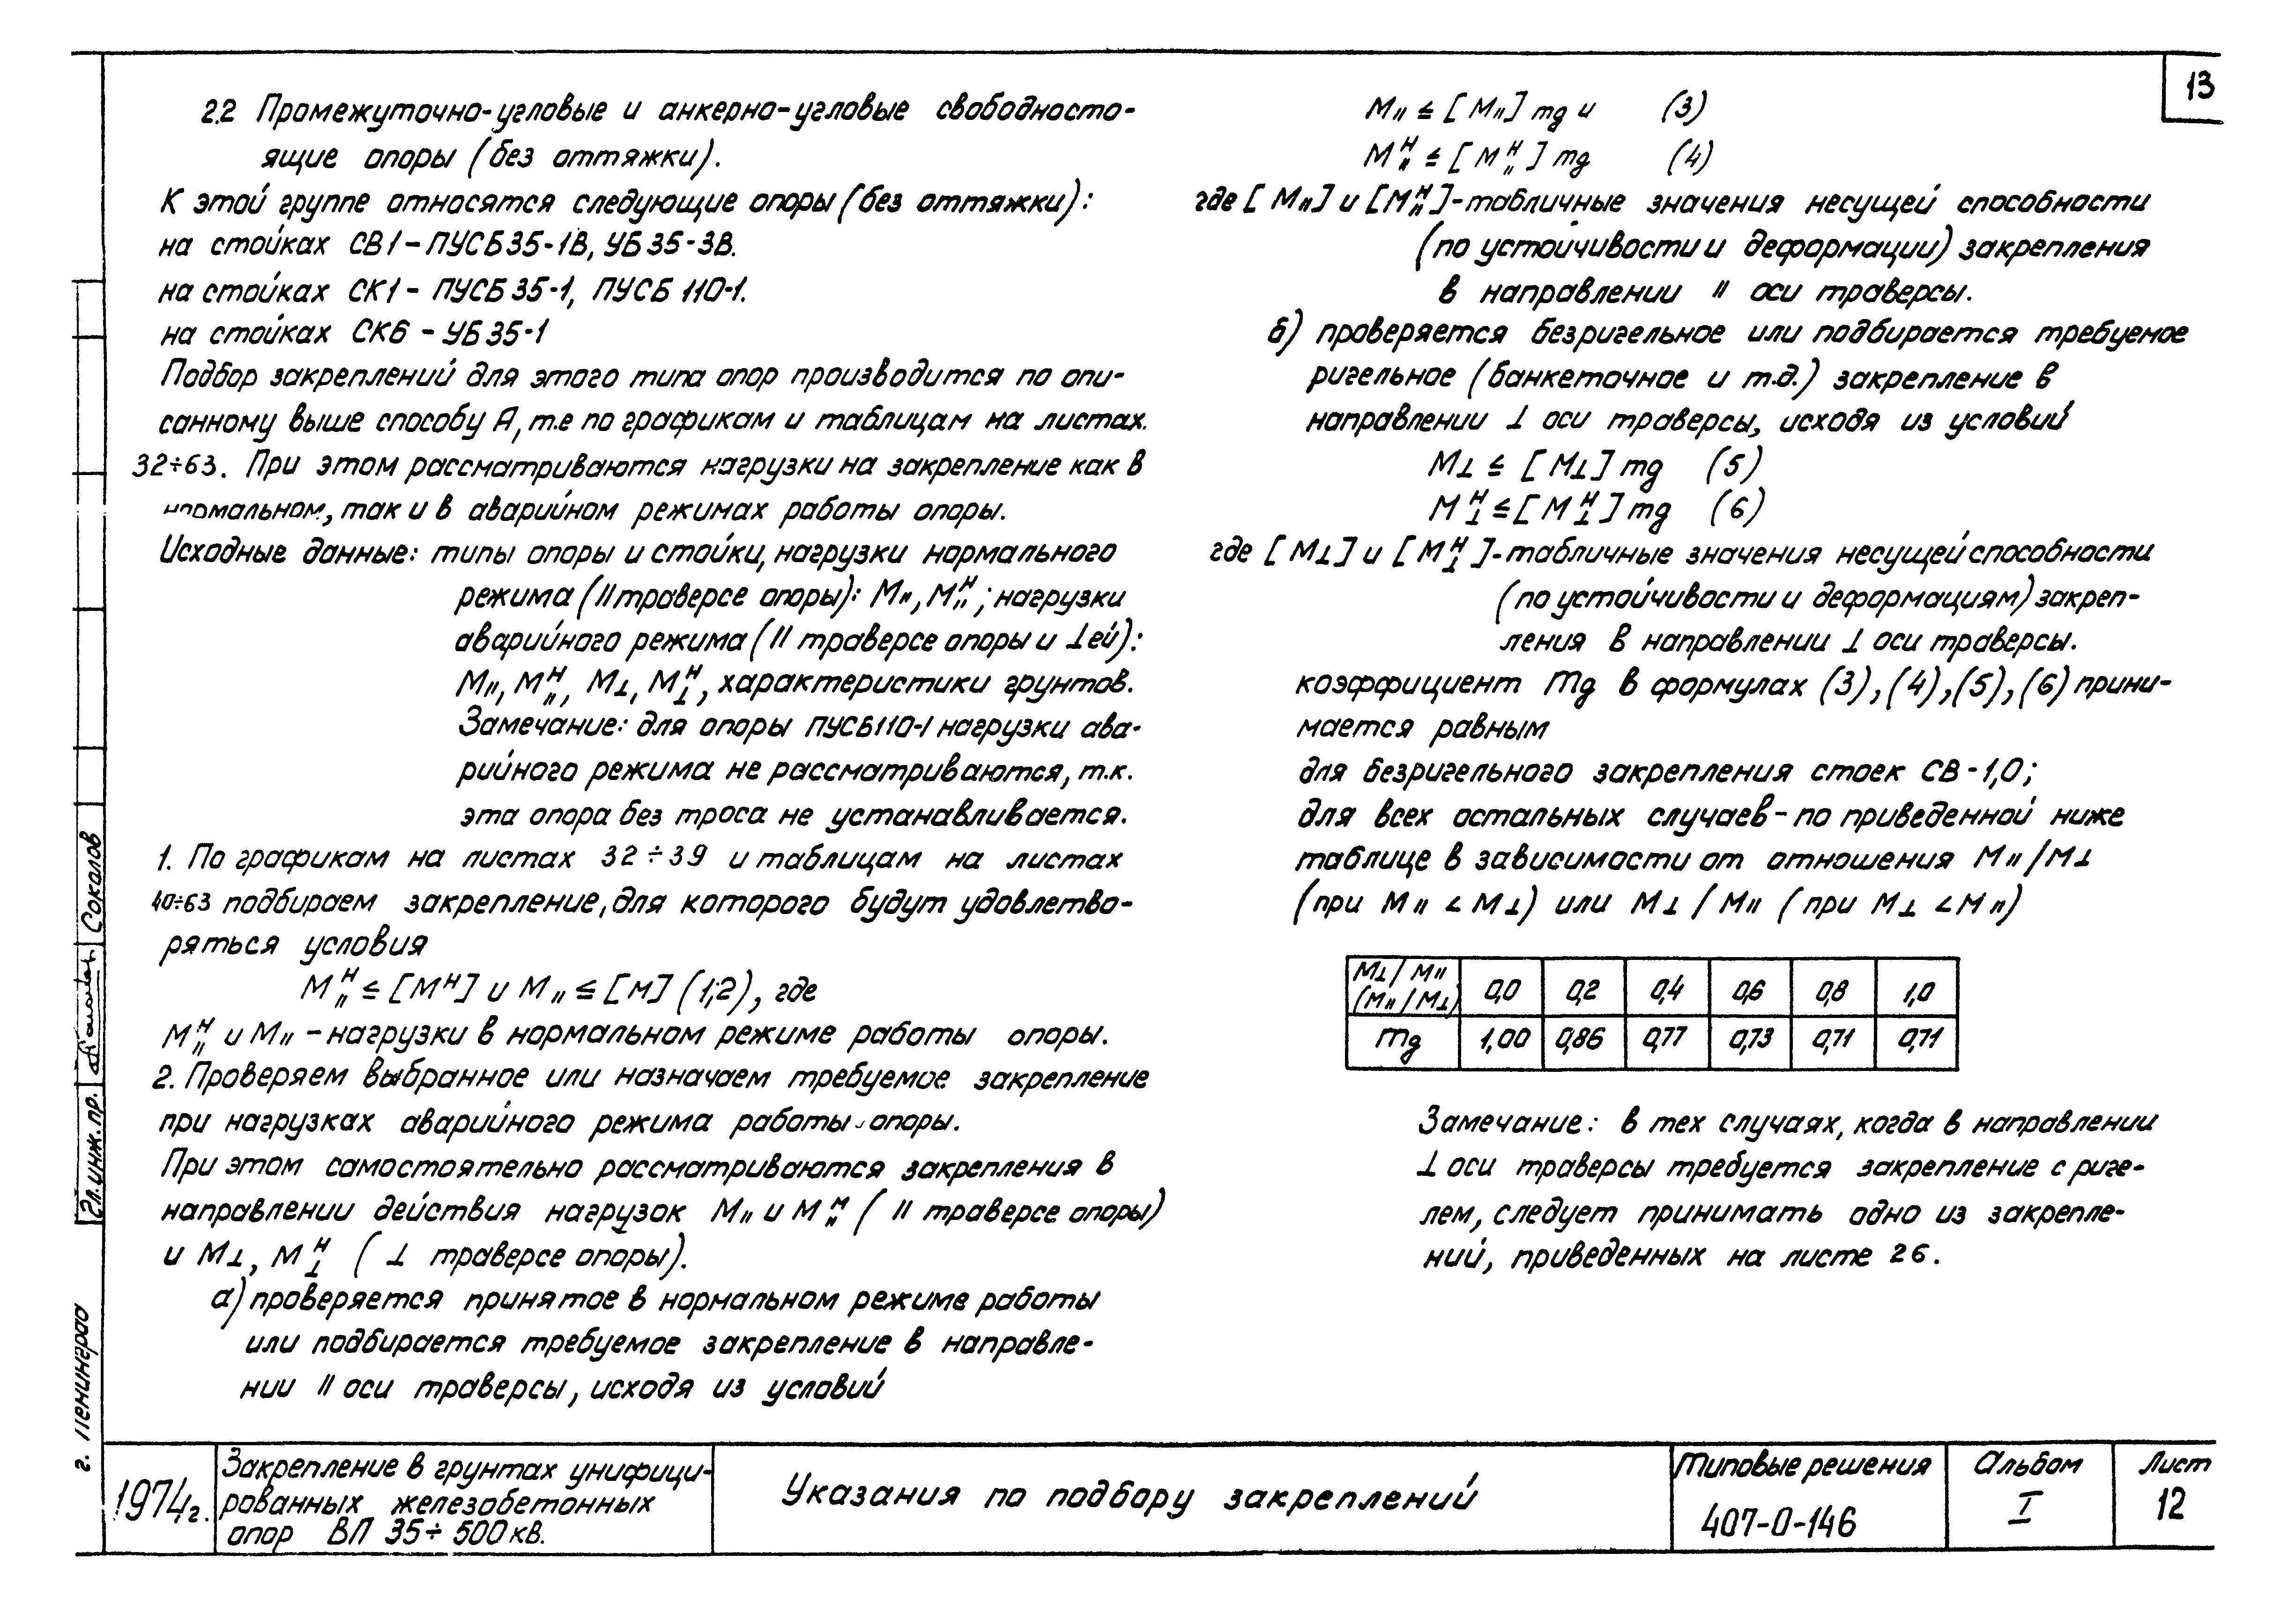 13
2.2 Промежуточно-угловые и анкерно-угловые свободносто-
ящие опоры (без оттяжки).
К этой группе относятся следующие опоры (без оттяжки):
на стойках СВ1 - ПУСБ35-1В, УБ35-3В.
на стойках СК1 - ПУСБ35-1, ПУСБ 110-1.
на стойках СК6 - УБ35-1
Подбор закреплений для этого типа опор производится по опи-
санному выше способу А, т.е по графикам и таблицам на листах.
32÷63. При этом рассматриваются нагрузки на закрепление как в
нормальном, так и в аварийном режимах работы опоры.
Исходные данные: типы опоры и стойки, нагрузки нормального
режима (II траверсе опоры): M||, M||ᴴ; нагрузки
аварийного режима (II траверсе опоры и ⊥ ей):
M||, M||ᴴ, M⊥, M⊥ᴴ, характеристики грунтов.
Замечание: для опоры ПУСБ110-1 нагрузки ава-
рийного режима не рассматриваются, т.к.
эта опора без троса не устанавливается.
1. По графикам на листах 32÷39 и таблицам на листах
40÷63 подбираем закрепление, для которого будут удовлетво-
ряться условия
M||ᴴ ≤ [Mᴴ] и M|| ≤ [M] (1;2), где
M||ᴴ и M|| - нагрузки в нормальном режиме работы опоры.
2. Проверяем выбранное или назначаем требуемое закрепление
при нагрузках аварийного режима работы опоры.
При этом самостоятельно рассматриваются закрепления в
направлении действия нагрузок M|| и M||ᴴ (II траверсе опоры)
и M⊥, M⊥ᴴ (⊥ траверсе опоры).
а) проверяется принятое в нормальном режиме работы
или подбирается требуемое закрепление в направле-
нии II оси траверсы, исходя из условий
M|| ≤ [M||] mg и (3)
M||ᴴ ≤ [M||ᴴ] mg (4)
где [M||] и [M||ᴴ] - табличные значения несущей способности
(по устойчивости и деформации) закрепления
в направлении II оси траверсы.
б) проверяется безригельное или подбирается требуемое
ригельное (банкеточное и т.д.) закрепление в
направлении ⊥ оси траверсы, исходя из условий
M⊥ ≤ [M⊥] mg (5)
M⊥ᴴ ≤ [M⊥ᴴ] mg (6)
где [M⊥] и [M⊥ᴴ] - табличные значения несущей способности
(по устойчивости и деформациям) закреп-
ления в направлении ⊥ оси траверсы.
коэффициент mg в формулах (3), (4), (5), (6) прини-
мается равным
для безригельного закрепления стоек СВ - 1,0;
для всех остальных случаев - по приведенной ниже
таблице в зависимости от отношения M||/M⊥
(при M|| < M⊥) или M⊥/M|| (при M⊥ < M||)
M⊥/M|| (M||/M⊥) 0,0 0,2 0,4 0,6 0,8 1,0
mg 1,00 0,86 0,77 0,73 0,71 0,71
Замечание: в тех случаях, когда в направлении
⊥ оси траверсы требуется закрепление с риге-
лем, следует принимать одно из закрепле-
ний, приведенных на листе 26.
г. Ленинград
Гл. инж. пр. Соколов
1974г.
Закрепление в грунтах унифици-
рованных железобетонных
опор ВЛ 35÷500 кв.
Указания по подбору закреплений
Типовые решения
407-0-146
Альбом
I
Лист
12